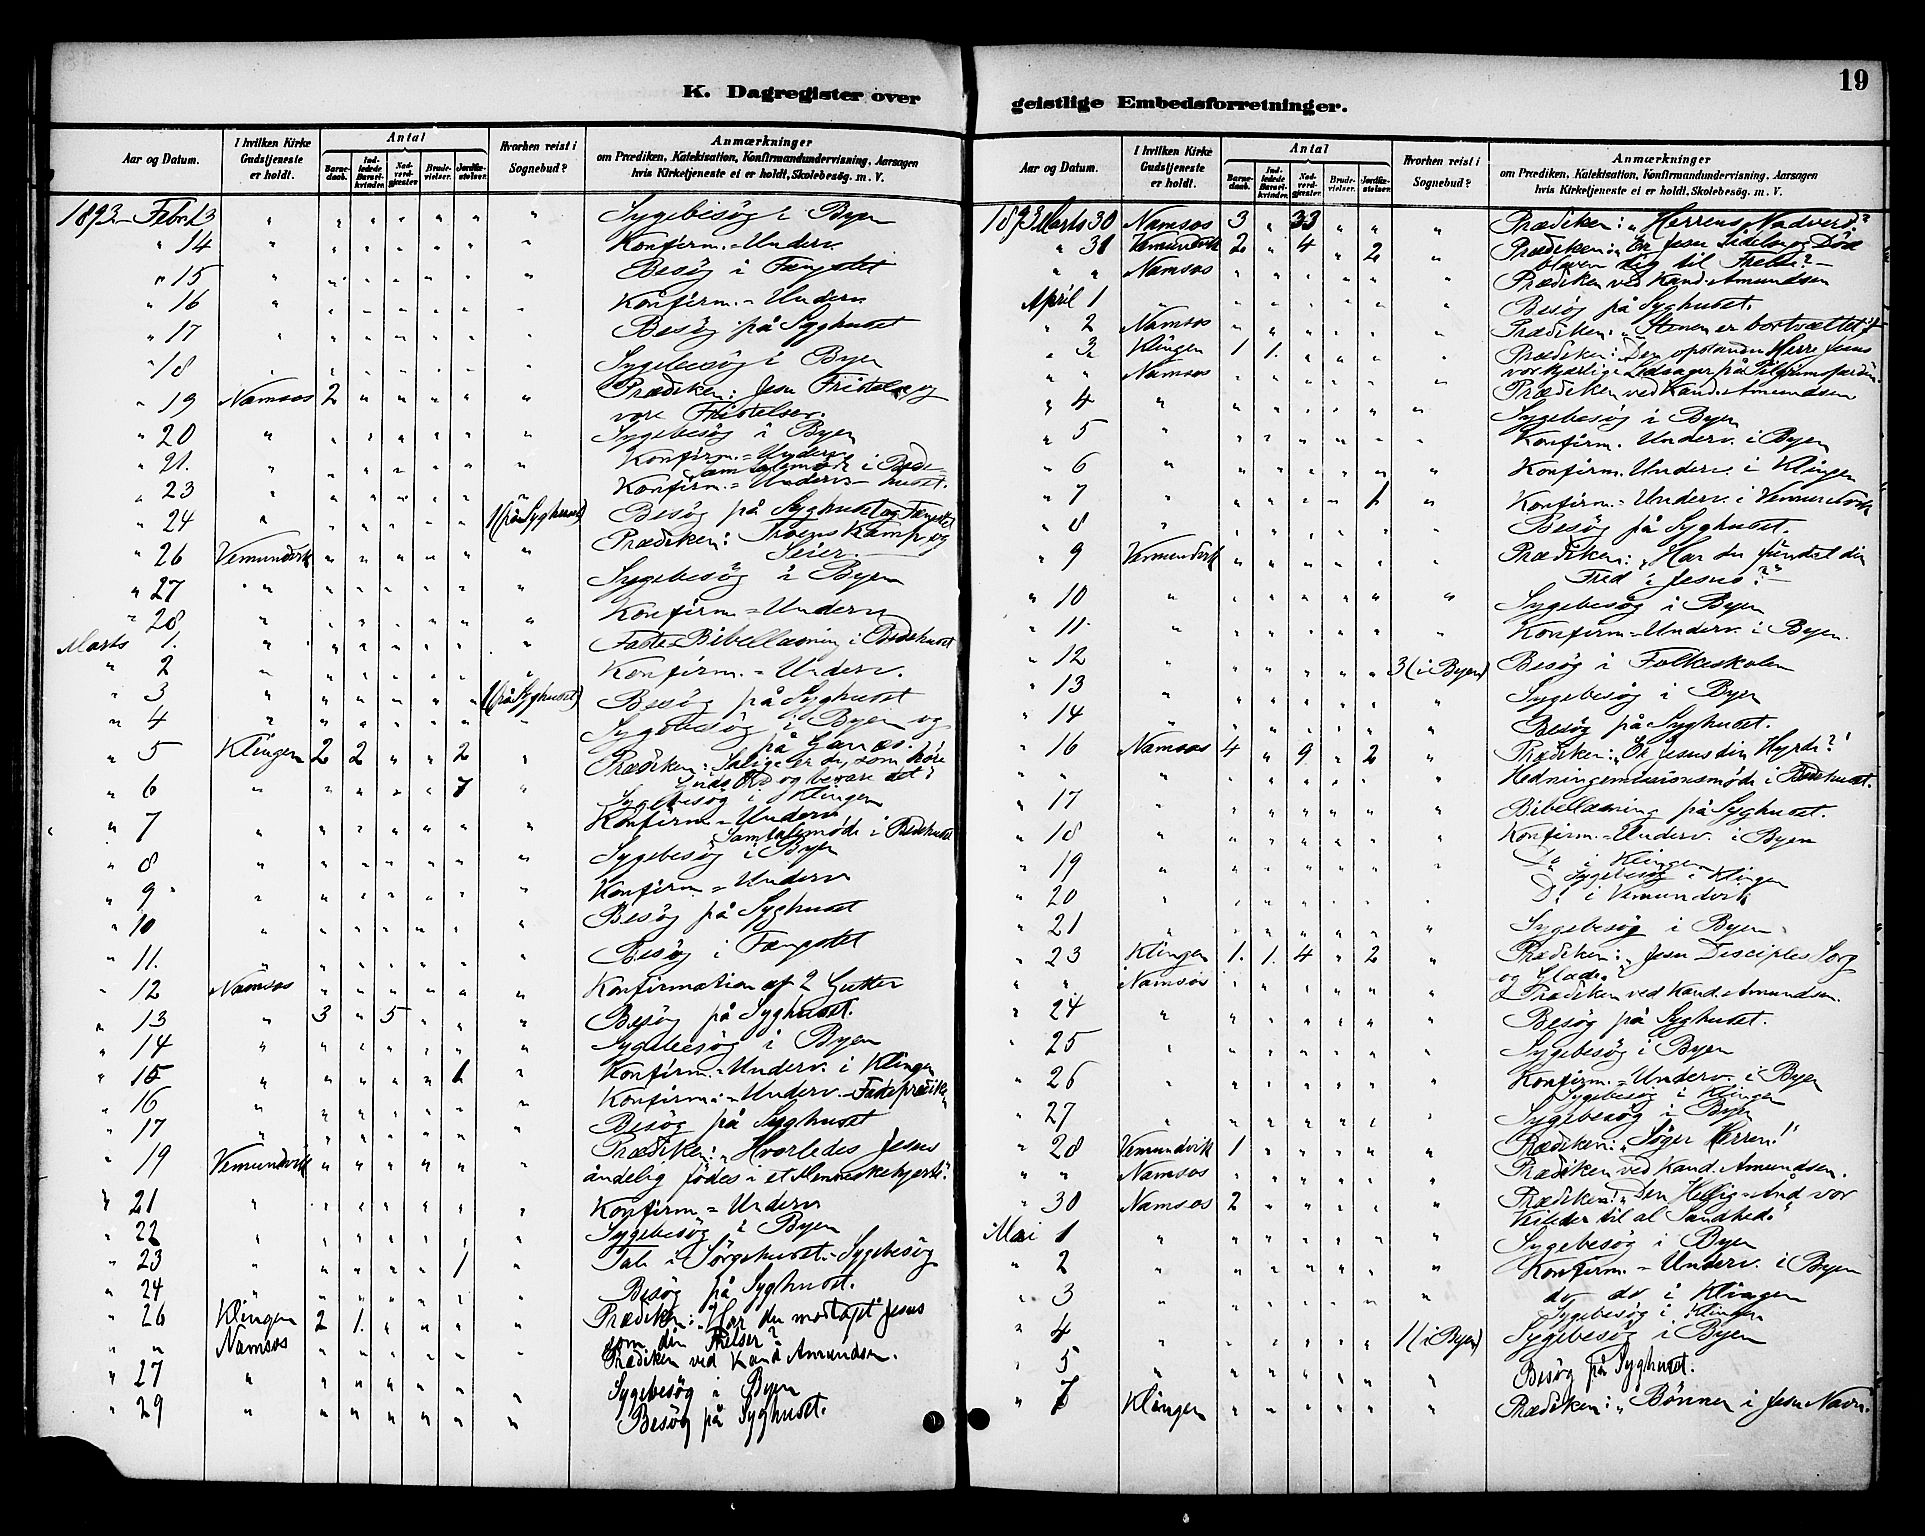 K. Dagregister over
Aar og Datum. I hvilken Kirke Gudstjeneste er holdt. Antal Barnedaab. Indledede Barselkvinder. Nadverdgjester. Brudevielser. Jordfæstelser. Hvorhen reist i Sognebud? Anmærkninger om Prædiken, Katekisation, Konfirmandundervisning, Aarsagen hvis Kirketjeneste ei er holdt, Skolebesøg. m. V.
1893 Febr. 13 " " " " " " " Sygebesøg i Byen
" 14 " " " " " " " Konfirm.=Underv.
" 15 " " " " " " " Besøg i Fængslet
" 16 " " " " " " " Konfirm.=Underv
" 17 " " " " " " " Besøg på Syghuset
" 18 " " " " " " " Sygebesøg i Byen
" 19 Namsos 2 " " " " " Prædiken: Jesu Fristelse og
vore Fristelser.
" 20 " " " " " " " Sygebesøg i Byen
" 21. " " " " " " " Konfirm.=Underv
Samtalemøde i Bede-
" 23 " " " " " " " Konfirm.=Underv- huset.
" 24 " " " " " " 1 (på Syghuset) Besøg på Syghuset og Fængslet
" 26 Vemundvik " " " " " " Prædiken: Troens Kamp og
Seier.
" 27 " " " " " " " Sygebesøg i Byen
" 28 " " " " " " " Konfirm.=Underv
Marts 1. " " " " " " " Faste=Bibellæsning i Bedehuset
" 2 " " " " " " " Konfirm.=Underv.
" 3 " " " " " " 1 (på Syghuset) Besøg på Syghuset
" 4 " " " " " " " Sygebesøg i Byen og
" 5 Klingen 2 2 " " 2 " Prædiken: Salige er de, som høre
Guds Ord og bevare det
" 6 " " " " " 7 " Sygebesøg i Klingen
" 7 " " " " " " " Konfirm.=Underv
Samtalemøde i Bedehuset
" 8 " " " " " " " Sygebesøg i Byen
" 9 " " " " " " " Konfirm=Underv
" 10 " " " " " " " Besøg på Syghuset
" 11. " " " " " " " Besøg i Fængslet
" 12 Namsos " " " " " " Konfirmation af 2 Gutter
" 13 " 3 " 5 " " " Besøg på Syghuset.
" 14 " " " " " " " Sygebesøg i Byen
" 15 " " " " " 1 " Konfirm.=Underv. i Klingen
" 16 " " " " " " " Konfirm.=Underv.-Fasteprædiken
" 17 " " " " " " " Besøg på Syghuset
" 19 Vemundvik " " " " " " Prædiken: "Hvorledes Jesus
åndelig fødes i et Menneskehjerte."
" 21 " " " " " " " Konfirm=Underv
" 22 " " " " " " " Sygebesøg i Byen
" 23 " " " " " 1 " Tale i Sørgehuset.-Sygebesøg
" 24 " " " " " " " Besøg på Syghuset.
" 26 Klingen 2 1. " " " " Prædiken: "Har du modtaget Jesus
som din Frelser?
" " Namsos " " " " " " Prædiken ved Kand Amundsen.
" 27 " " " " " " " Sygebesøg i Byen
" 29 " " " " " " " Besøg på Syghuset.
geistlige Embedsforretninger. 19
Aar og Datum. I hvilken Kirke Gudstjeneste er holdt. Antal Barnedaab. Indledede Barselkvinder. Nadverdgjester. Brudevielser. Jordfæstelser. Hvorhen reist i Sognebud? Anmærkninger om Prædiken, Katekisation, Konfirmandundervisning, Aarsagen hvis Kirketjeneste ei er holdt, Skolebesøg. m. V.
1893 Marts 30 Namsos 3 " 33 " " " Prædiken: "Herrens Nadverd"
" 31 Vemundvik 2 " 4 " 2 " Prædiken: "Er Jesu Lidelse og Død
bleven dig til Frelse?
" " Namsos " " " " " " Prædiken ved Kand. Amundsen
April 1 " " " " " " " Besøg på Syghuset.
" 2 Namsos " " " " " " Prædiken: "Stenen er bortvæltet"
" 3 Klingen 1 1. " " " " Prædiken: Den opstandne Herre Jesus
vor kjærlige Ledsager på Pilgrimsfærden.
" " Namsos " " " " " " Prædiken ved Kand. Amundsen
" 4 " " " " " " " Sygebesøg i Byen
" 5 " " " " " " " Konfirm. Underv. i Byen
" 6 " " " " " " " Konfirm. Underv. i Klingen
" 7 " " " " " 1 " Konfirm.=Underv. i Vemundvik
" 8 " " " " " " " Besøg på Syghuset.
" 9 Vemundvik " " " " " " Prædiken: "Har du fundet din
Fred i Jesus?"
" 10 " " " " " " " Sygebesøg i Byen
" 11. " " " " " " " Konfirm=Underv. i Byen.
" 12 " " " " " " 3 (i Byen) Besøg i Folkeskolen
" 13 " " " " " " " Sygebesøg i Byen
" 14 " " " " " " " Besøg på Syghuset.
" 16 Namsos 4 " 9 " 2 " Prædiken: "Er Jesus din Hyrde?"
" " " " " " " " " Hedningemissionsmøde i Bedehuset.
" 17 " " " " " " " Bibellæsning på Syghuset.
" 18 " " " " " " " Konfirm.=Underv. i Byen
" 19 " " " " " " " Do i Klingen
Sygebesøg i Klingen
" 20 " " " " " " " Do i Vemundvik
" 21 " " " " " " " Sygebesøg i Byen
" 23 Klingen 1. 1. 4 " 2 " Prædiken: "Jesu Disciples Sorg
og Glæde."
" " Namsos " " " " " " Prædiken ved Kand. Amundsen.
" 24 " " " " " " " Besøg på Syghuset.
" 25 " " " " " " " Sygebesøg i Byen
" 26 " " " " " " " Konfirm.=Underv. i Byen
Sygebesøg i Klingen
" 27 " " " " " " " Sygebesøg i Byen
" 28 Vemundvik 1 " " " " " Prædiken: "Søger Herren!"
" " Namsos " " " " " " Prædiken ved Kand. Amundsen.
" 30 Namsos 2 " " " " " Prædiken: "Den Hellig=Ånd vor
Veileder til al Sandhed."
Mai 1 " " " " " " " Sygebesøg i Byen
" 2 " " " " " " " Konfirm.=Underv. i Byen
" 3 " " " " " " " do do i Klingen
Sygebesøg i Klingen
" 4 " " " " " " 1 (i Byen) Sygebesøg i Byen
" 5 " " " " " " " Besøg på Syghuset.
" 7 Klingen " " " " " " Prædiken: "Bønnen i Jesu Navn.